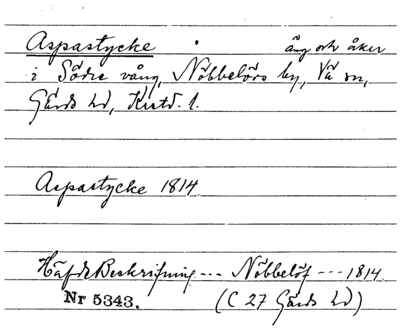 Aspastycke äng och åker
i Södre vång, Nöbbelövs by, Vä sn,
Gärds hd, Krist. l.
Aspastycke 1814
Häfde Beskrifning --- Nöbbelöf --- 1814.
Nr 5343. (C 27 Gärds hd)